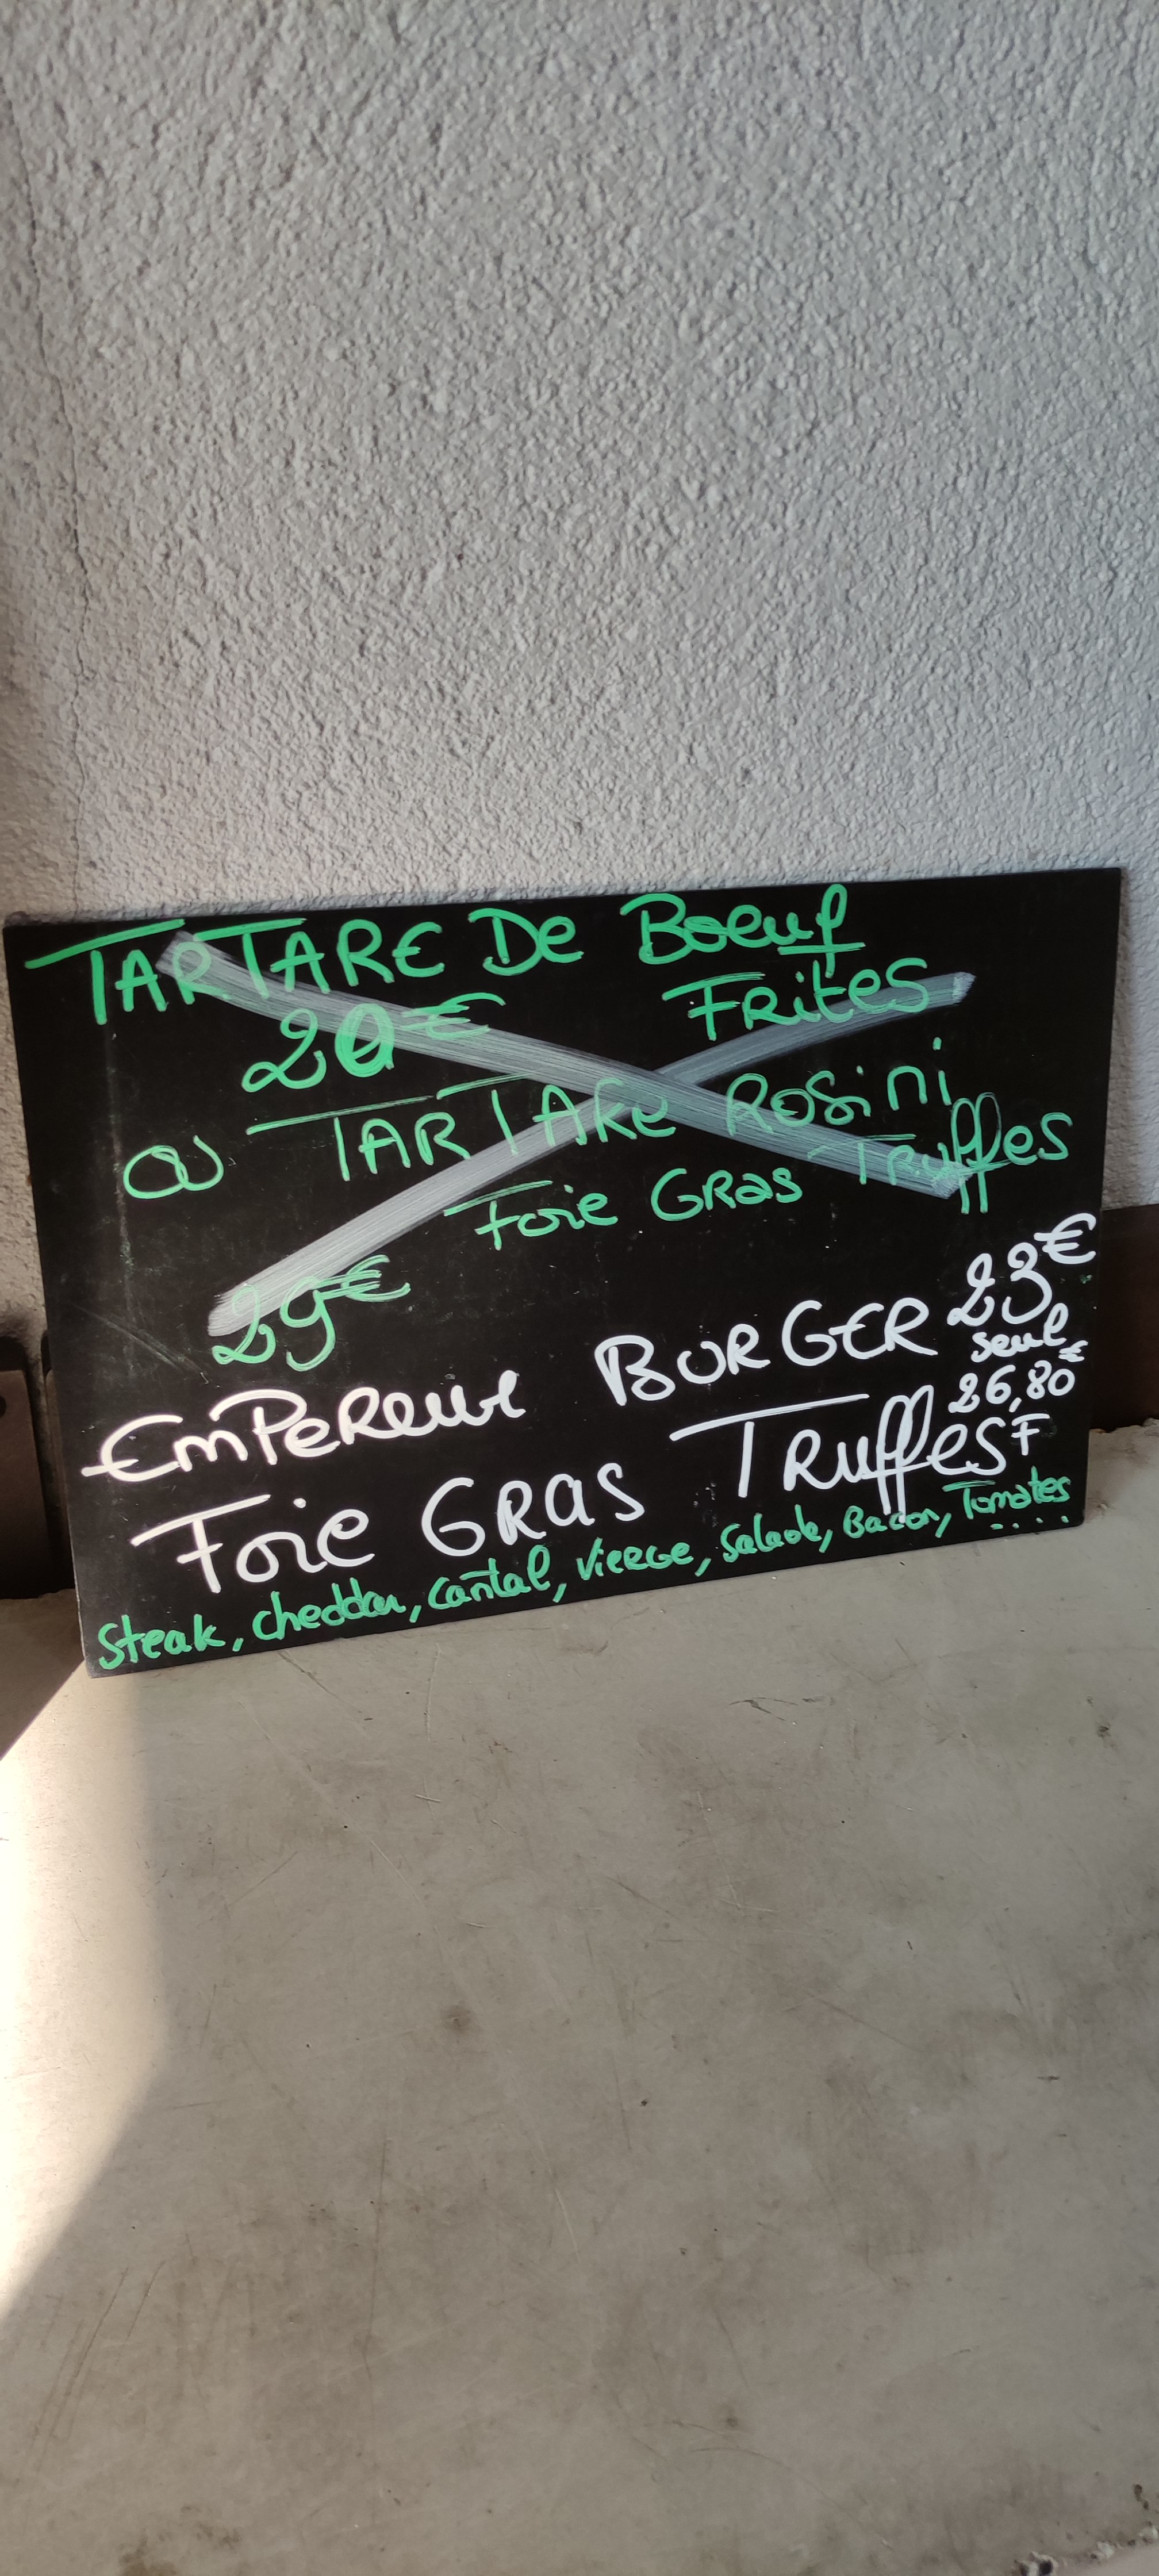 TARTARE De Boeuf
20€ FRites
ou TARTARe ROSini
Foie GRas Truffes
29€
EmPeReuR BURGER 23€
seul
26,80€
Foie GRas TRuffes F
Steak, cheddar, Cantal, VieRGe, Salade, Bacon, Tomates
....